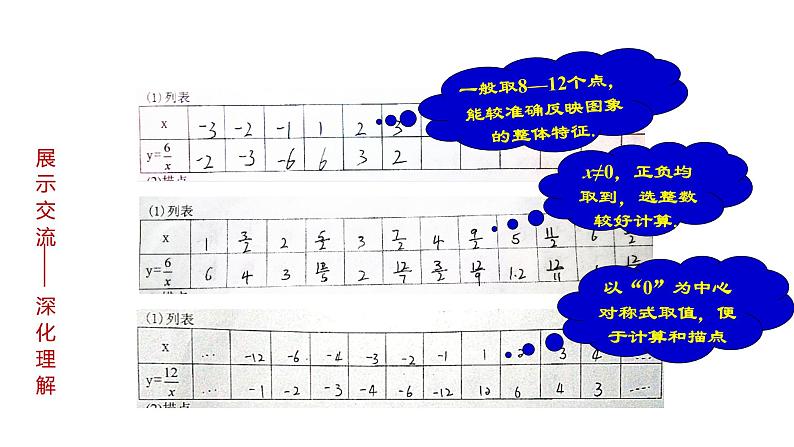 展示交流——深化理解
(1) 列表
x -3 -2 -1 1 2 3
y=6/x -2 -3 -6 6 3 2
一般取8—12个点，
能较准确反映图象
的整体特征.
(1) 列表
x 1 3/2 2 5/2 3 7/2 4 9/2 5 11/2 6
y=6/x 6 4 3 12/5 2 12/7 3/2 12/9 1.2 12/11
x≠0，正负均
取到，选整数
较好计算.
(1) 列表
x ... -12 -6 -4 -3 -2 -1 1 2 3 4 ...
y=12/x ... -1 -2 -3 -4 -6 -12 12 6 4 3 ...
以“0”为中心
对称式取值，便
于计算和描点